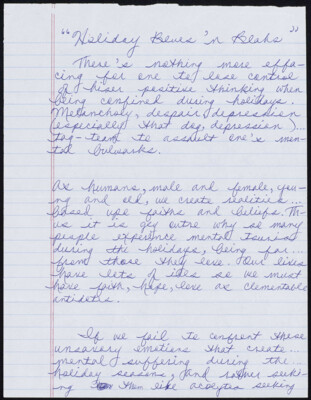 "Holiday Blues 'n Blahs"
There's nothing more effa-
cing for one to lose control
of hiser positive thinking when
being confined during holidays.
Melancholy, despair, depression
(especially that dog, depression)...
tag-team to assault one's men-
tal bulwarks.
As humans, male and female, you-
ng and old, we create realities...
based upo faiths and beliefs. Th-
us it is gey outre why so many
people experience mental tourism
during the holidays, being far...
from those they love. Our lives
have lots of ides so we must
have faith, hope, love as clementable
antidotes.
If we fail to confront these
unsavory emotions that create...
mental suffering during the...
holiday seasons, and rather seeki-
ng them like acolytes seeking